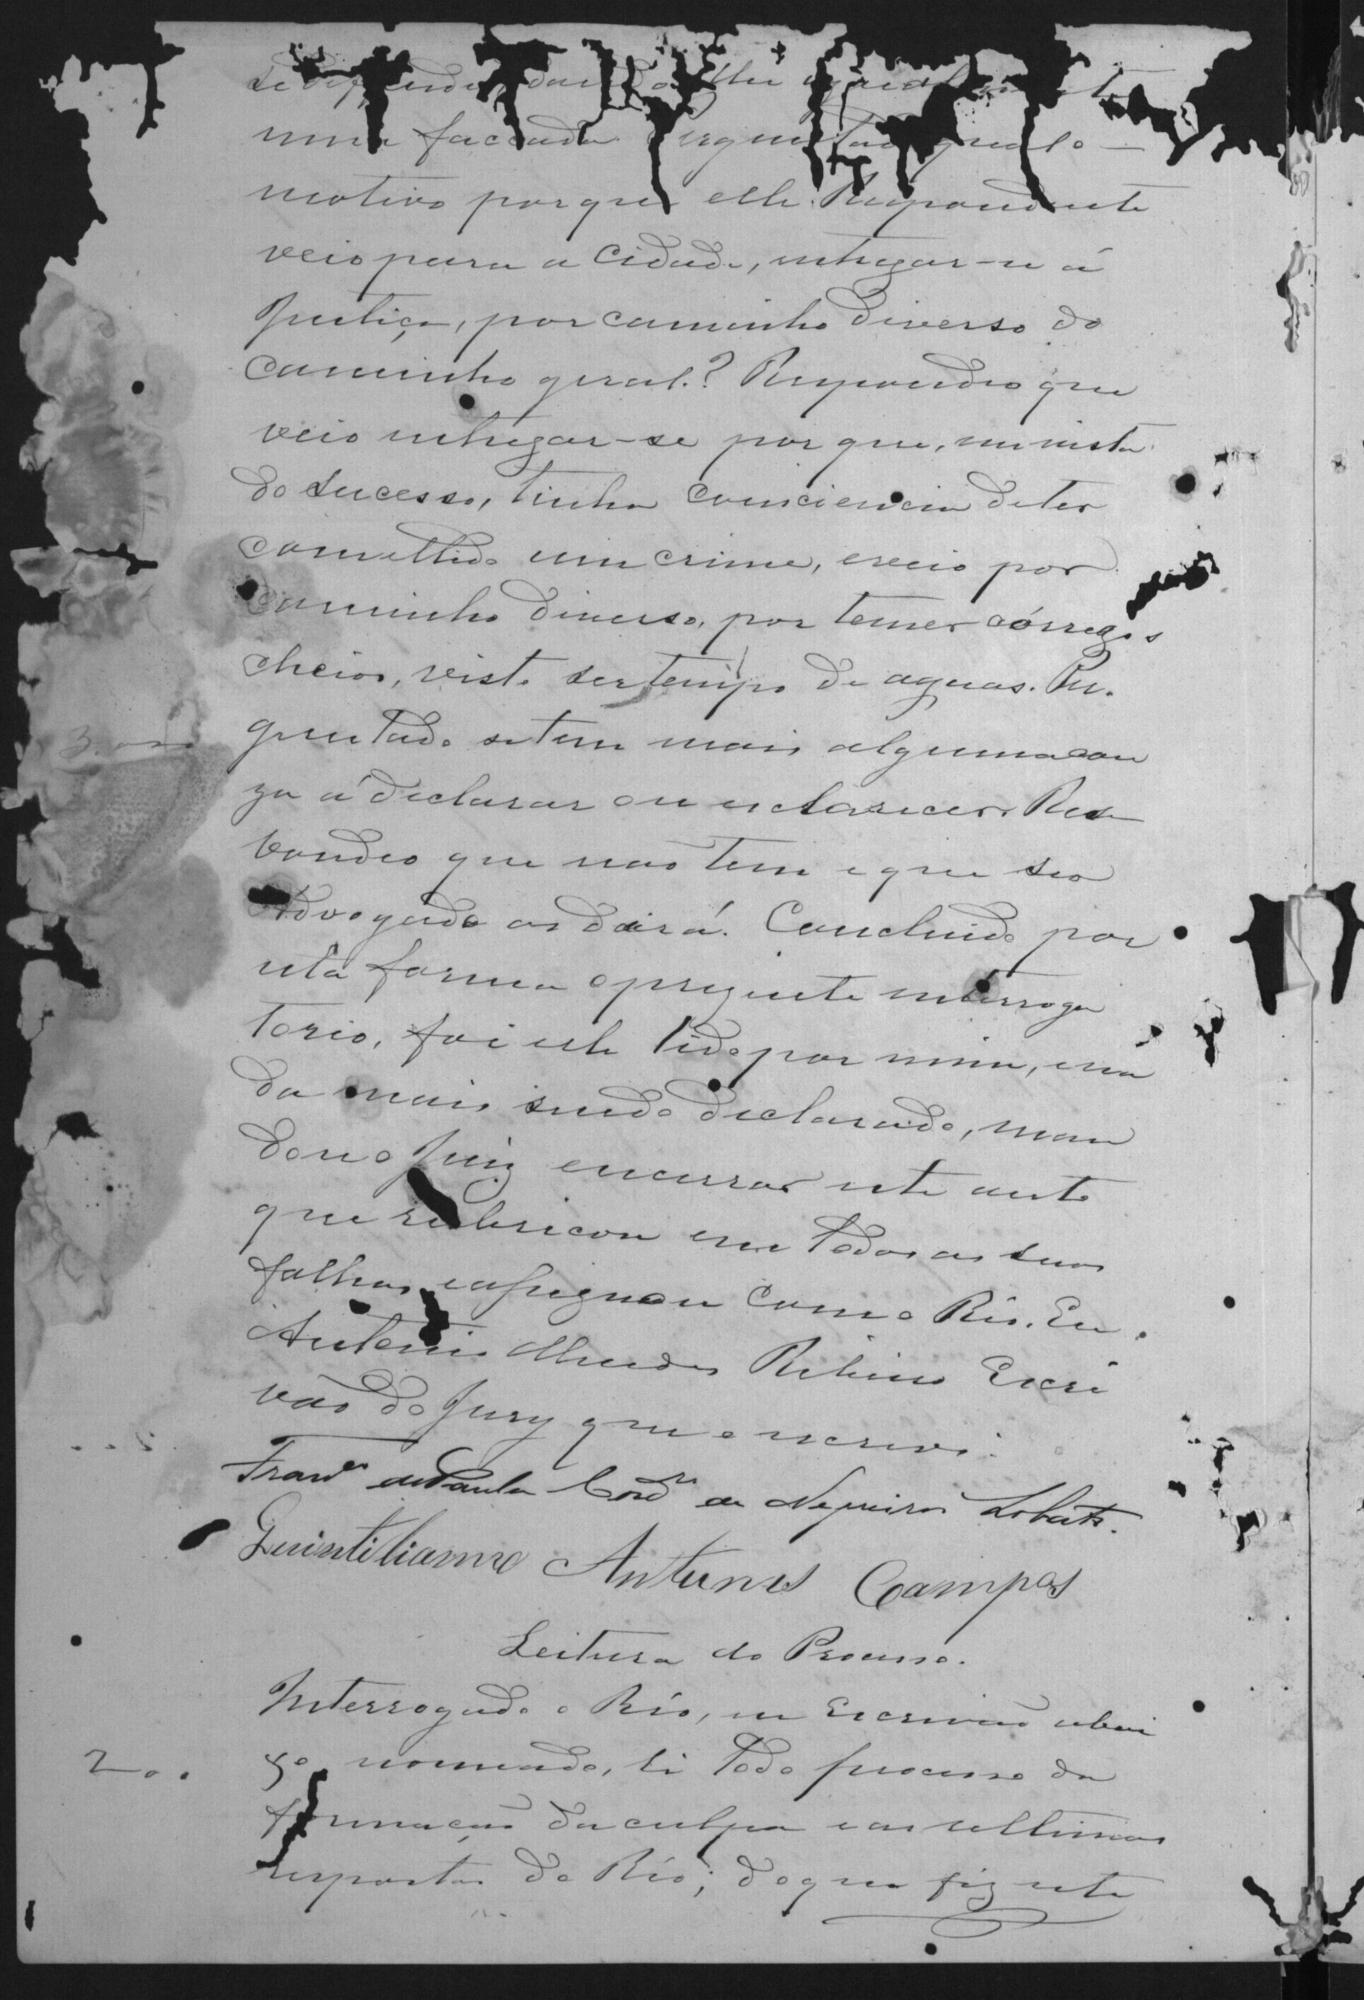 se defendendo, dando lhe igualmente
uma faccada. Perguntado qual o
motivo porque elle Respondente
veio para a Cidade, entregar-se á
Justiça, por caminho diverso do
caminho geral? Respondeo que
veio entregar-se por que, em vista
do sucesso, tinha consciencia de ter
comettido um crime, e veio por
caminho diverso, por temer córregos
cheios, visto ser tempo de aguas. Per-
guntado se tem mais alguma cou
za á declarar ou esclarecer. Res
pondeo que não tem e que seo
Advogado as dará. Concluido por
esta forma o prezente interroga
torio, foi este lido por mim, e na
da mais sendo declarado, man
dou o Juiz encerrar este auto
que rubricou em todas as suas
folhas, e assignou com o Réo. Eu
Antonio Mendes Ribeiro Escri
vão do Jury que o escrevi.
Franco de Paula Cordro de Negreiros Lobato.
Quintilianno Antunes Campos
Leitura do Processo.
Interrogado o Réo, eu Escrivão abai
xo nomeado, li todo processo da
2 formação da culpa e as ultimas
respostas do Réo; do que fiz este